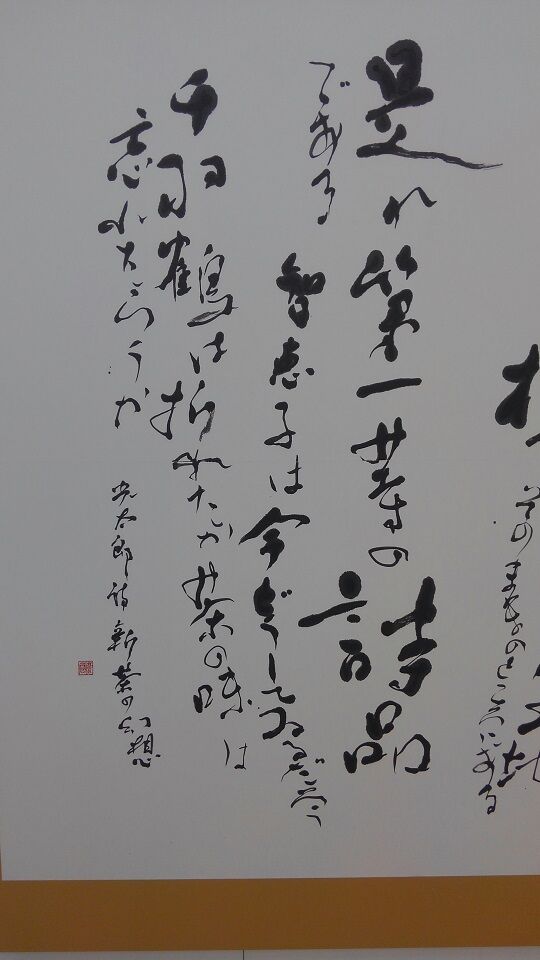 ところにある
是れ第一等の詩品
である
智恵子は今どうしてゐるだらう
千羽鶴は折れたか茶の味は
忘れただらうか
光太郎詩 新茶の幻想